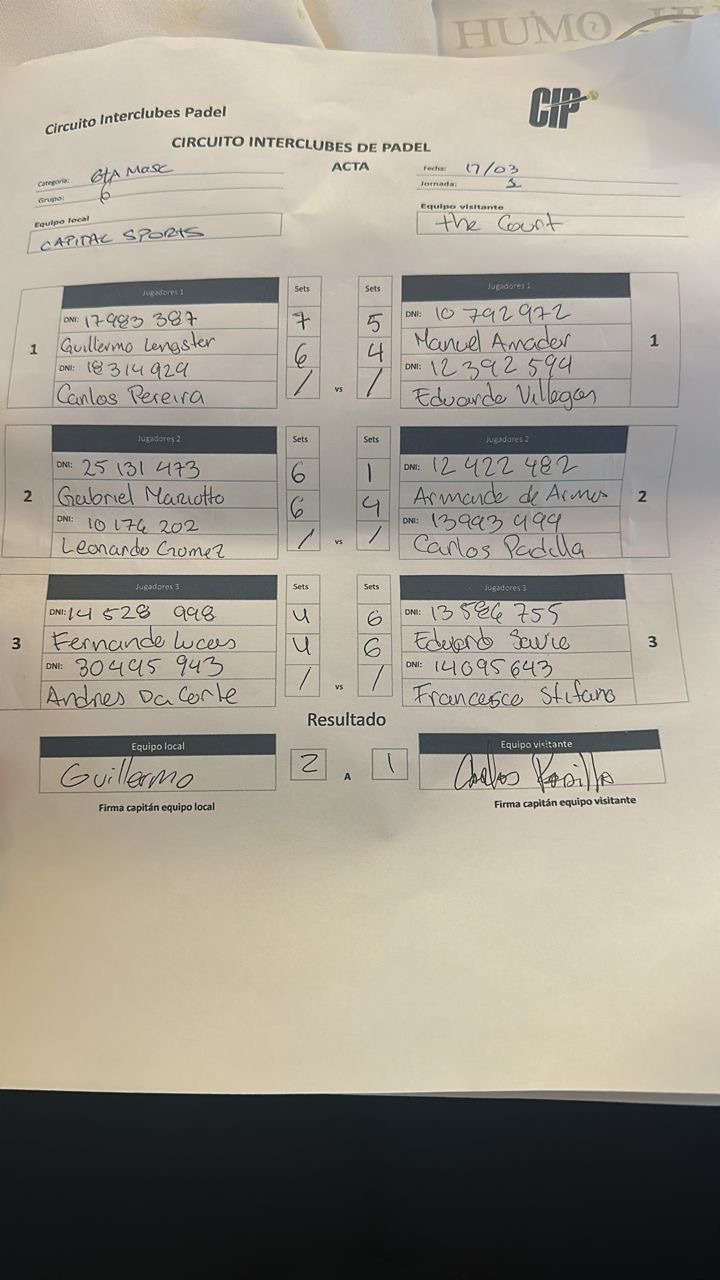 HUMO
Circuito Interclubes Padel
CIP
CIRCUITO INTERCLUBES DE PADEL
ACTA
Categoría: 6tA Masc
Fecha: 17/03
Grupo: 6
Jornada: 1
Equipo local
Equipo visitante
CAPITAL SPORTS
the Court
Jugadores 1 Sets Sets Jugadores 1
DNI: 17983 387 7 5 DNI: 10 792 972
1 Guillermo Lengster 6 4 Manuel Amador 1
DNI: 18 314 929 / vs / DNI: 12 392 594
Carlos Pereira Eduardo Villegas
Jugadores 2 Sets Sets Jugadores 2
DNI: 25 131 473 6 1 DNI: 12 422 482
2 Gabriel Mariotto 6 4 Armando de Armas 2
DNI: 10 174 202 / vs / DNI: 13993 499
Leonardo Gomez Carlos Padilla
Jugadores 3 Sets Sets Jugadores 3
DNI: 14 528 998 4 6 DNI: 13 586 755
3 Fernando Lucas 4 6 3
DNI: 30495 943 / vs / DNI: 14095643
Andres Da Corte Francesco Stifano
Resultado
Equipo local Equipo visitante
Guillermo 2 A 1 Carlos Padilla
Firma capitán equipo local Firma capitán equipo visitante